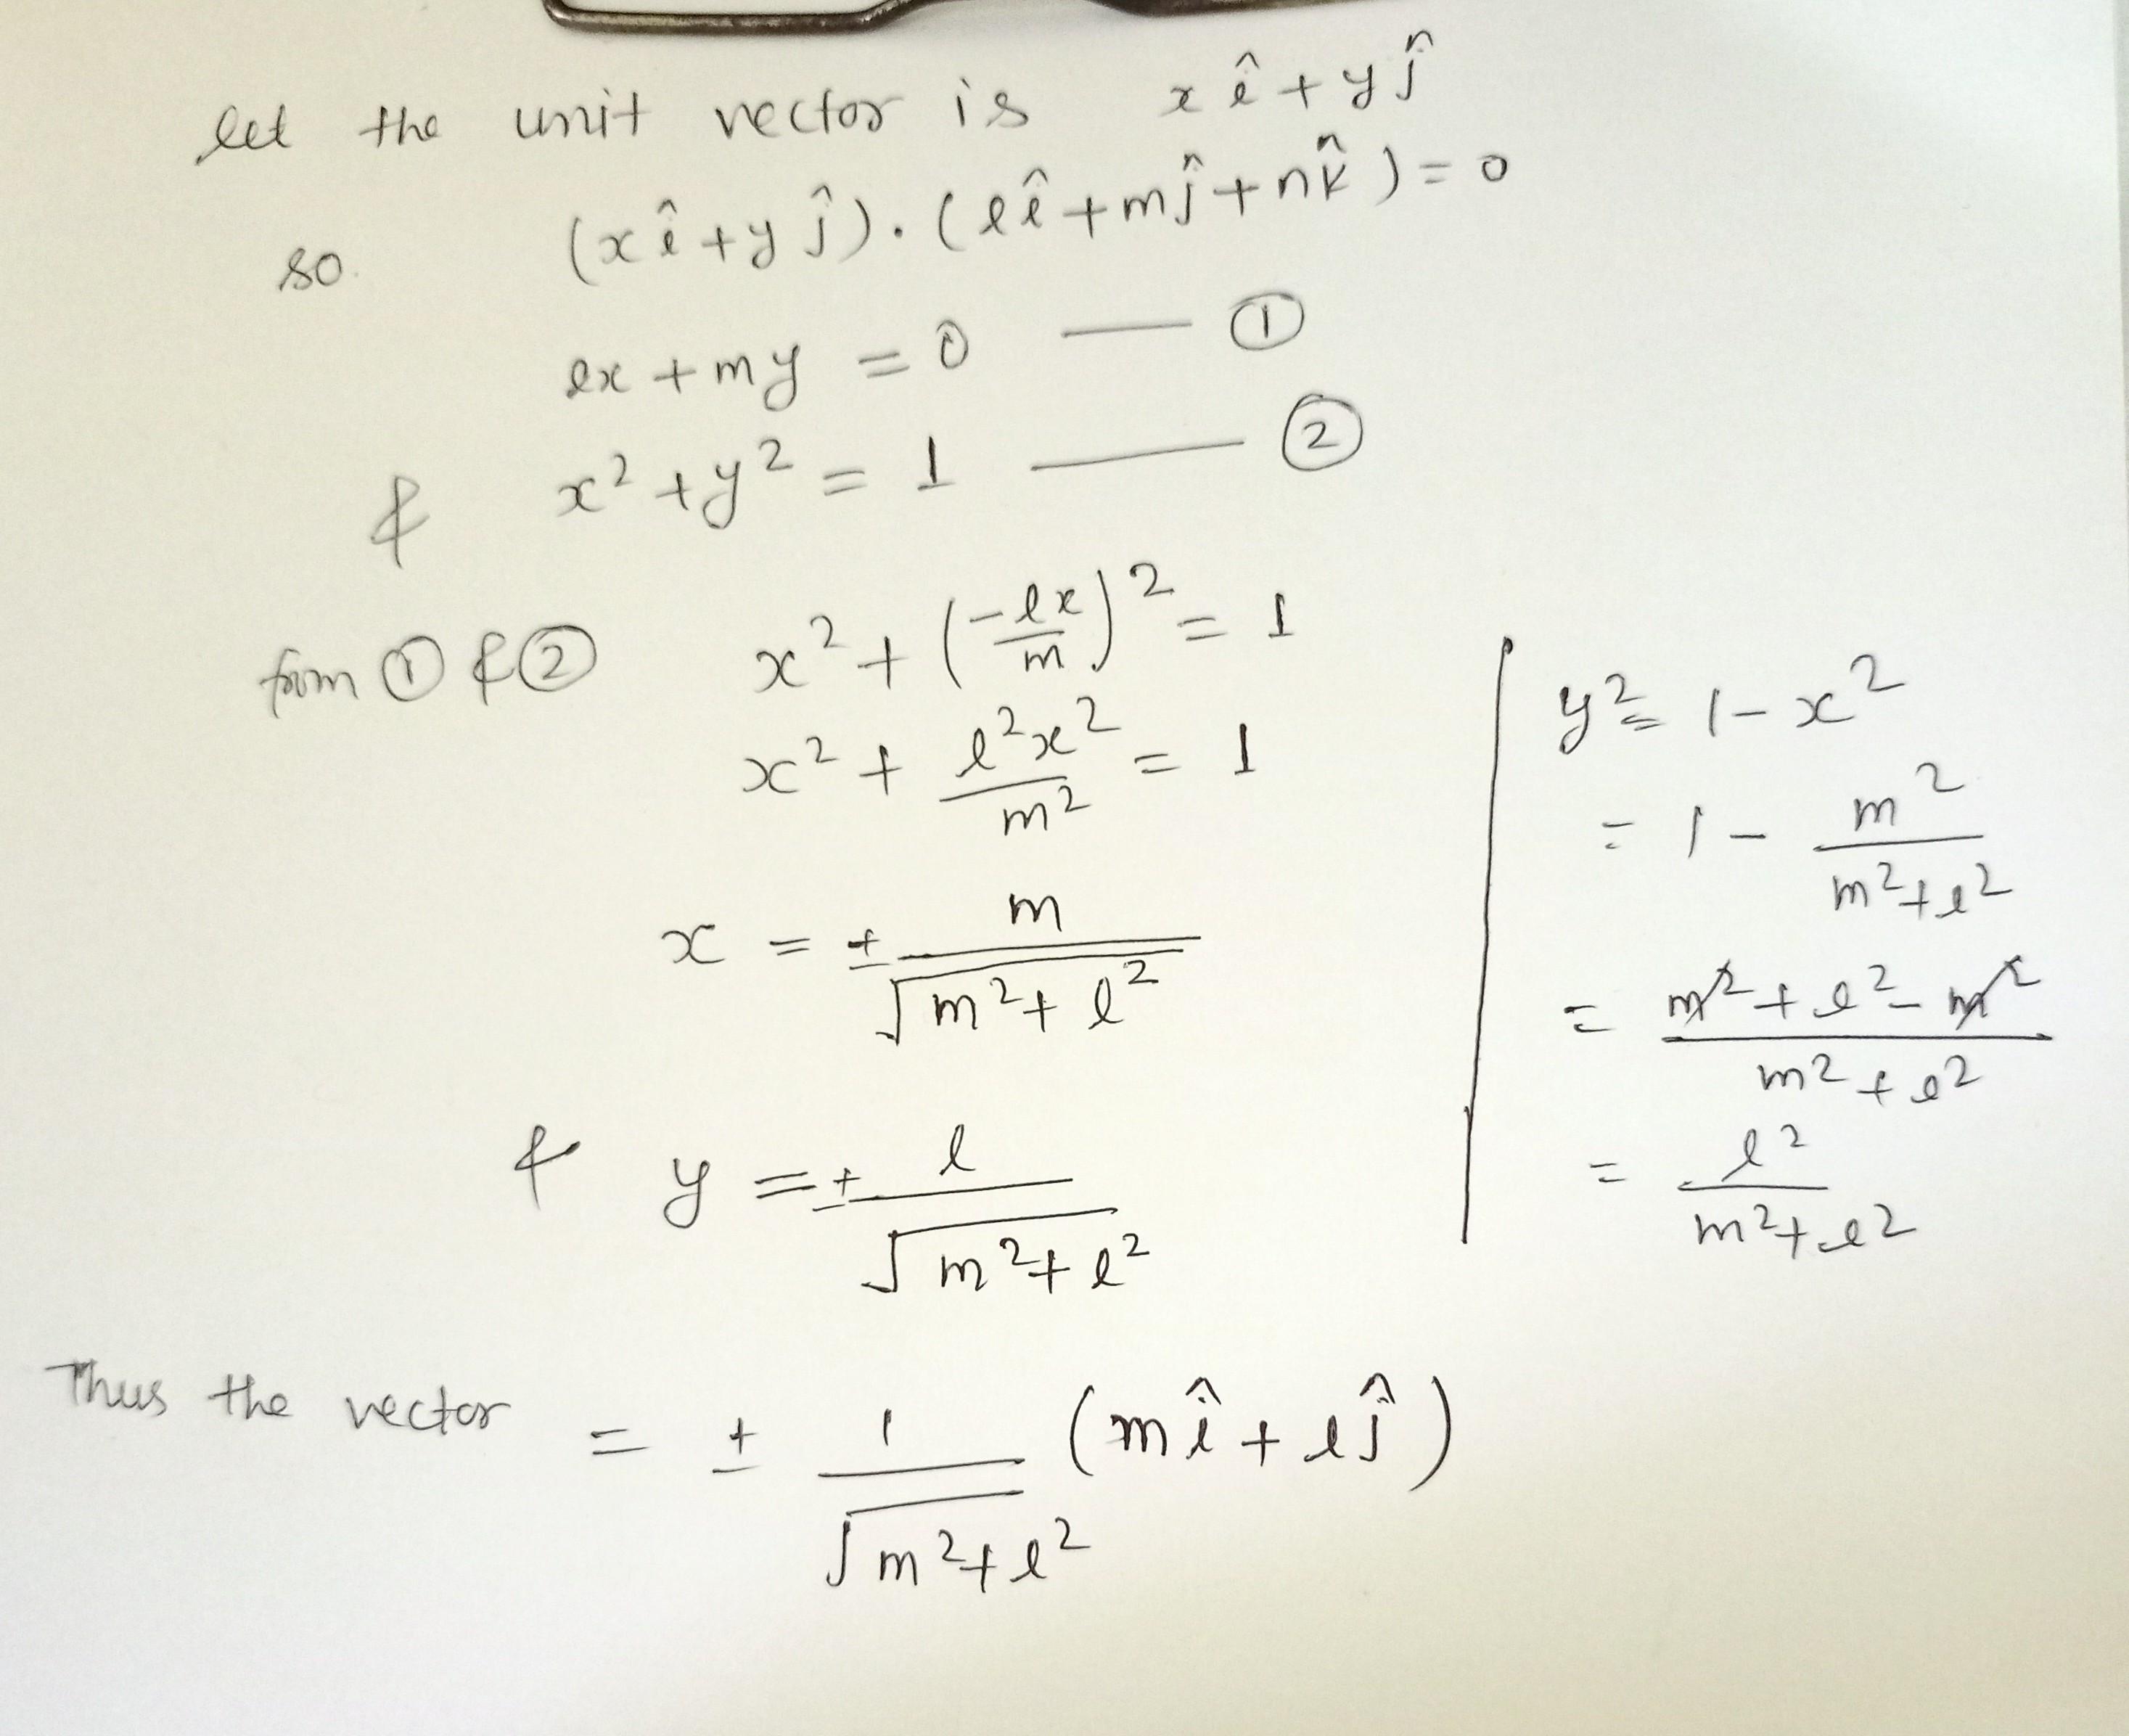 let the unit vector is x î + y ĵ
so. (x î + y ĵ) . (l î + m ĵ + n k̂) = 0
lx + my = 0 — ①
& x² + y² = 1 — ②
from ① & ② x² + (-lx/m)² = 1
x² + l²x²/m² = 1
x = ± m/√(m² + l²)
& y = ± l/√(m² + l²)
y² = 1 - x²
= 1 - m²/(m² + l²)
= (m² + l² - m²)/(m² + l²)
= l²/(m² + l²)
Thus the vector = ± 1/√(m² + l²) (m î + l ĵ)